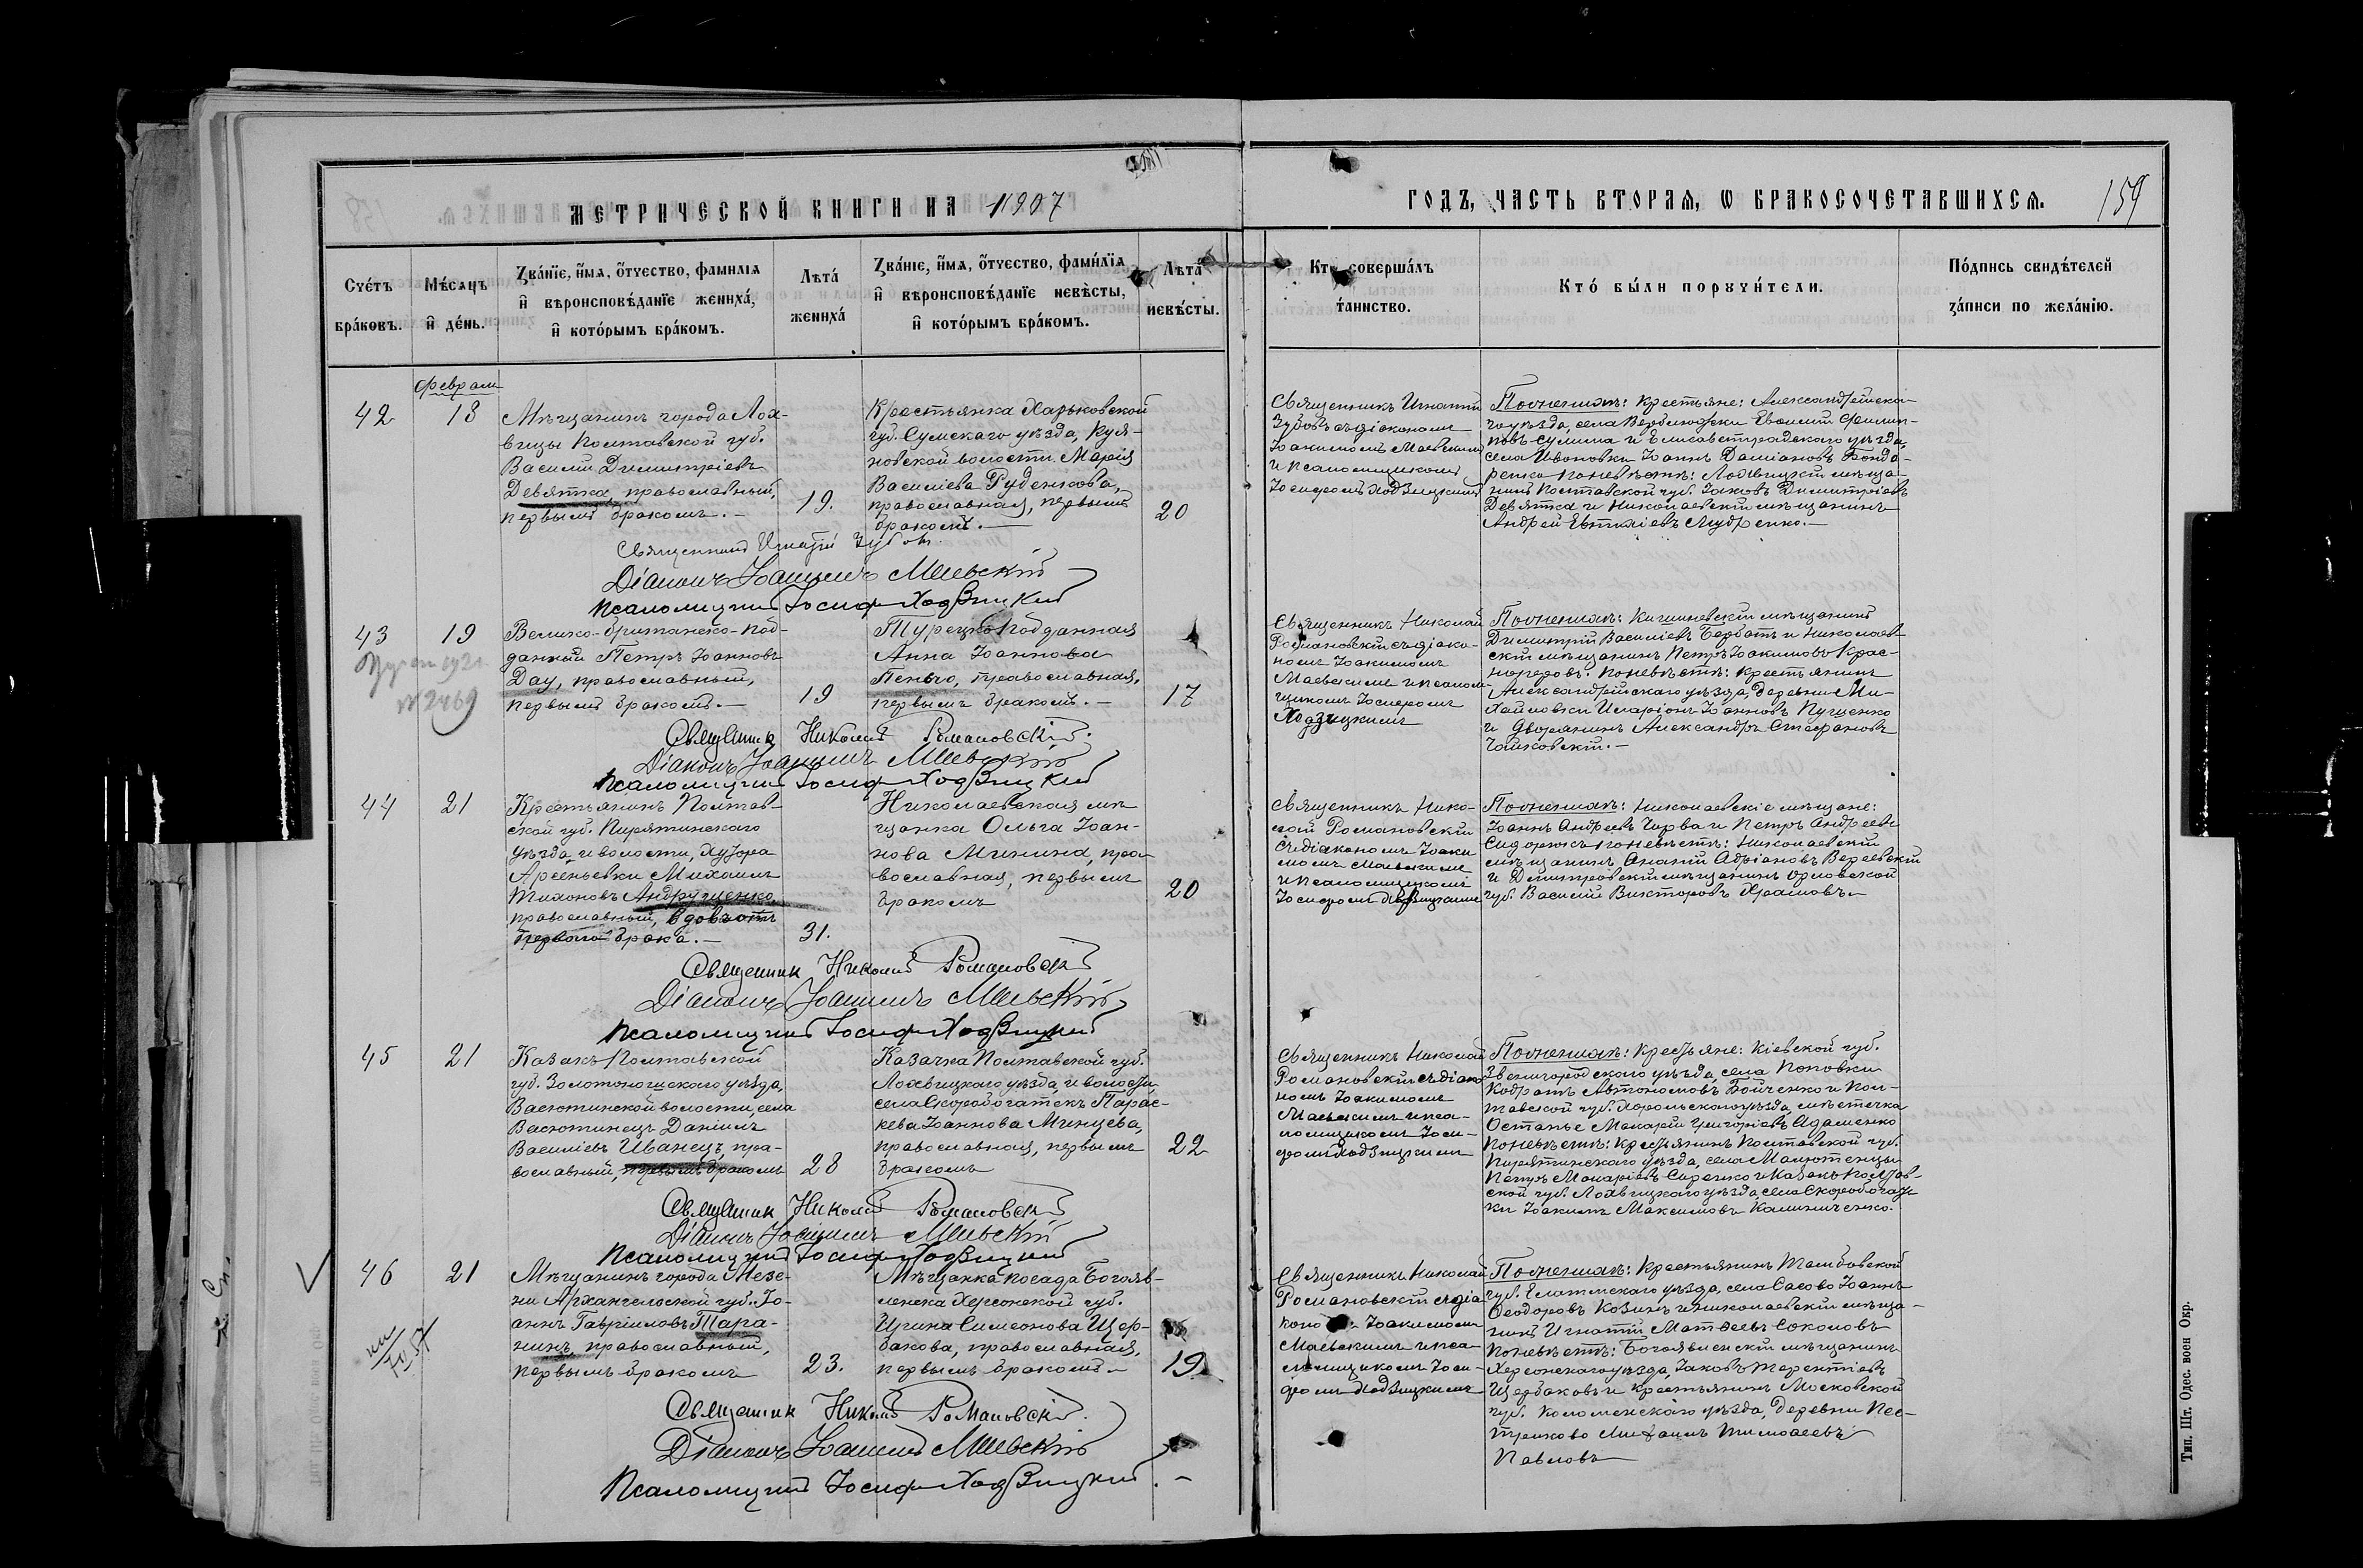 МЕТРИЧЕСКОЙ КНИГИ НА 1907
ГОДЪ, ЧАСТЬ ВТОРАЯ, Ѡ БРАКОСОЧЕТАВШИХСЯ.
159
Счетъ браковъ.
Мѣсяцъ и день.
Званіе, имя, отчество, фамилія
и вѣроисповѣданіе жениха,
и которымъ бракомъ.
Лѣта
жениха
Званіе, имя, отчество, фамилія
и вѣроисповѣданіе невѣсты,
и которымъ бракомъ.
Лѣта
невѣсты.
Кто совершалъ
таинство.
Кто были поручители.
Подпись свидѣтелей
записи по желанію.
Феврали
42
18
Мѣщанинъ города Лох-
вицы Полтавской губ.
Василій Димитріевъ
Девятка, православный,
первымъ бракомъ.—
19.
Крестьянка Харьковской
губ. Сумскаго уѣзда, Куя-
новской волости Марія
Василіева Руденкова,
православная, первымъ
бракомъ.—
20
Священникъ Игнатій
Зубовъ съ діакономъ
Іоакимомъ Маевскимъ
и псаломщикомъ
Іосифомъ Ходзицкимъ
По женихѣ: крестьяне: Александрійска-
го уѣзда, села Верблюжки Евѳимій Филип-
повъ Сумина и Елисаветградскаго уѣзда,
села Ивановки Іоаннъ Даміановъ Бонда-
ренко по невѣстѣ: Лохвицкій мѣща-
нинъ Полтавской губ. Іаковъ Димитріевъ
Девятка и Николаевскій мѣщанинъ
Андрей Мудренко.—
Священникъ Игнатій Зубовъ.
Діаконъ Іоакимъ Маевскій
Псаломщикъ Іосифъ Ходзицкій
43
19
№ 2469
Велико-британско-под-
данный Петръ Іоанновъ
Дау, православный,
первымъ бракомъ.—
19
Турецко подданная
Анна Іоаннова
Пеньчо, православная,
первымъ бракомъ.—
17
Священникъ Николай
Романовскій съ діако-
номъ Іоакимомъ
Маевскимъ и псалом-
щикомъ Іосифомъ
Ходзицкимъ
По женихѣ: Кишиневскій мѣщанинъ
Димитрій Василіевъ Бербатъ и Николаев-
скій мѣщанинъ Петръ Іоакимовъ Крас-
ноперовъ. по невѣстѣ: крестьянинъ
Александрійскаго уѣзда, деревни Ми-
хайловки Иларіонъ Іоанновъ Пущенко
и дворянинъ Александръ Стефановъ
Чайковскій.—
Священникъ Николай Романовскій.
Діаконъ Іоакимъ Маевскій
Псаломщикъ Іосифъ Ходзицкій
44
21
Крестьянинъ Полтав-
ской губ. Пирятинскаго
уѣзда, и волости, хутора
Арсеньевки Михаилъ
Тихоновъ Андрущенко,
православный, вдовъ отъ
перваго брака.—
31.
Николаевская мѣ-
щанка Ольга Іоан-
нова Минина, пра-
вославная, первымъ
бракомъ
20
Священникъ Нико-
лай Романовскій
съ діакономъ Іоаки
момъ Маевскимъ
и псаломщикомъ
Іосифомъ Ходзицкимъ
По женихѣ: Николаевскіе мѣщане:
Іоаннъ Андреевъ Чорва и Петръ Андреевъ
Сидорюкъ по невѣстѣ: Николаевскій
мѣщанинъ Ананій Адріановъ Вереевскій
и Дмитровскій мѣщанинъ Орловской
губ. Василій Викторовъ Храмовъ.—
Священникъ Николай Романовскій
Діаконъ Іоакимъ Маевскій
Псаломщикъ Іосифъ Ходзицкій
45
21
Казакъ Полтавской
губ. Золотоношскаго уѣзда,
Васютинской волости, села
Васютинецъ Даніилъ
Василіевъ Иванецъ, пра-
вославный, первымъ бракомъ
28
Казачка Полтавской губ.
Лохвицкаго уѣзда, и волости,
села Скоробогатекъ Парас-
кева Іоаннова Минцева,
православная, первымъ
бракомъ
22
Священникъ Николай
Романовскій съ діако
номъ Іоакимомъ
Маевскимъ и пса-
ломщикомъ Іоси-
фомъ Ходзицкимъ
По женихѣ: крестьяне: Кіевской губ.
Звенигородскаго уѣзда, села Поповки
Кодратъ Автономовъ Бойченко и Пол-
тавской губ. Хорольскаго уѣзда, мѣстечка
Остапье Макарій Григоріевъ Адаменко
по невѣстѣ: крестьянинъ Полтавской губ.
Пирятинскаго уѣзда, села Малютенцы
Петръ Макаріевъ Сиренко и казакъ Полтав-
ской губ. Лохвицкаго уѣзда, села Скоробогать-
ки Іоакимъ Максимовъ Калиниченко.
Священникъ Николай Романовскій
Діаконъ Іоакимъ Маевскій
Псаломщикъ Іосифъ Ходзицкій
46
21
Мѣщанинъ города Мезе-
ни Архангельской губ. Іо-
аннъ Гавріиловъ Тара-
нинъ, православный,
первымъ бракомъ
23.
Мѣщанка посада Богояв-
ленска Херсонской губ.
Ирина Симеонова Щер-
бакова, православная,
первымъ бракомъ—
19.
Священникъ Николай
Романовскій съ діа
кономъ Іоакимомъ
Маевскимъ и пса
ломщикомъ Іоси-
фомъ Ходзицкимъ
По женихѣ: Крестьянинъ Тамбовской
губ. Елатомскаго уѣзда, села Сасово Іоаннъ
Ѳеодоровъ Козинъ и николаевскій мѣща-
нинъ Игнатій Матвеевъ Соколовъ
по невѣстѣ: Богоявленскій мѣщанинъ
Херсонскаго уѣзда, Іаковъ Терентіевъ
Щербаковъ и крестьянинъ Московской
губ. Коломенскаго уѣзда, деревни Пес-
триково Михаилъ Тимоѳеевъ
Павловъ
Священникъ Николай Романовскій.
Діаконъ Іоакимъ Маевскій
Псаломщикъ Іосифъ Ходзицкій.—
Тип. Шт. Одес. воен Окр.